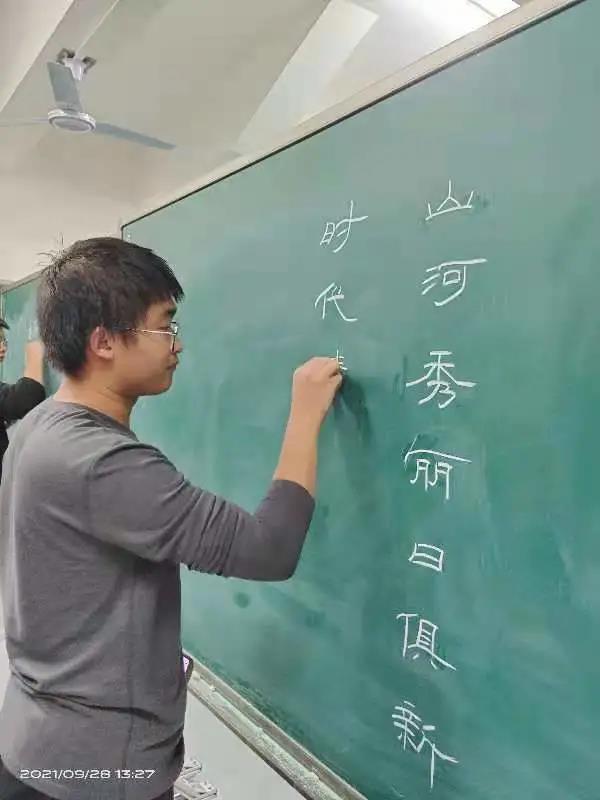 山河秀丽日俱新
时代
2021/09/28 13:27